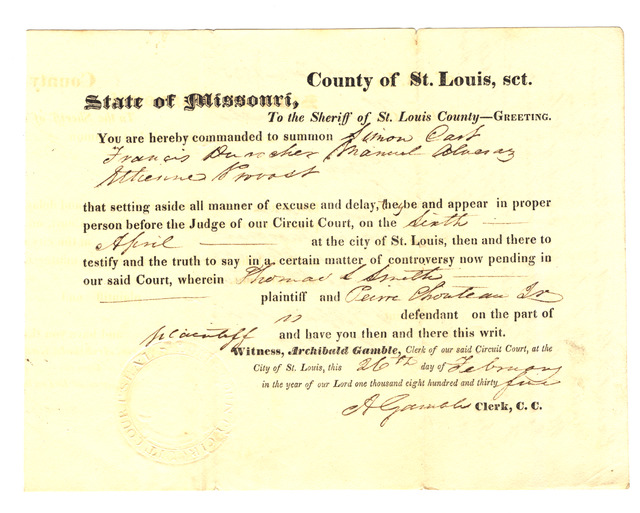 County of St. Louis, sct.
State of Missouri,
To the Sheriff of St. Louis County—GREETING.
You are hereby commanded to summon Simon Cart
Francis Duncher Manuel Alvaraz
Etienne Provost
that setting aside all manner of excuse and delay, they be and appear in proper
person before the Judge of our Circuit Court, on the Sixth
April at the city of St. Louis, then and there to
testify and the truth to say in a certain matter of controversy now pending in
our said Court, wherein Thomas L Smith
plaintiff and Peirre Chouteau Jr
is defendant on the part of
plaintiff and have you then and there this writ.
Witness, Archibald Gamble, Clerk of our said Circuit Court, at the
City of St. Louis, this 26th day of February
in the year of our Lord one thousand eight hundred and thirty five
A Gamble Clerk, C. C.